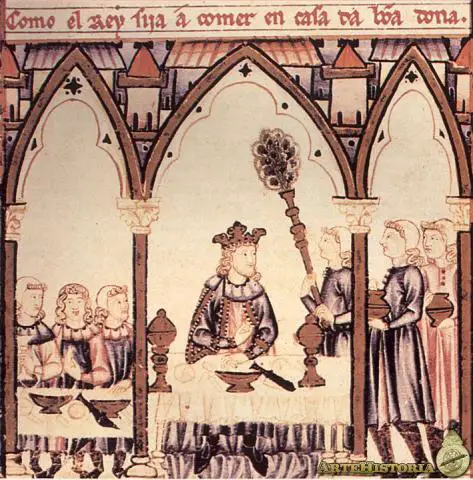 Como el Rey sija a comer en casa da bõa dona.
ARTEHISTORIA